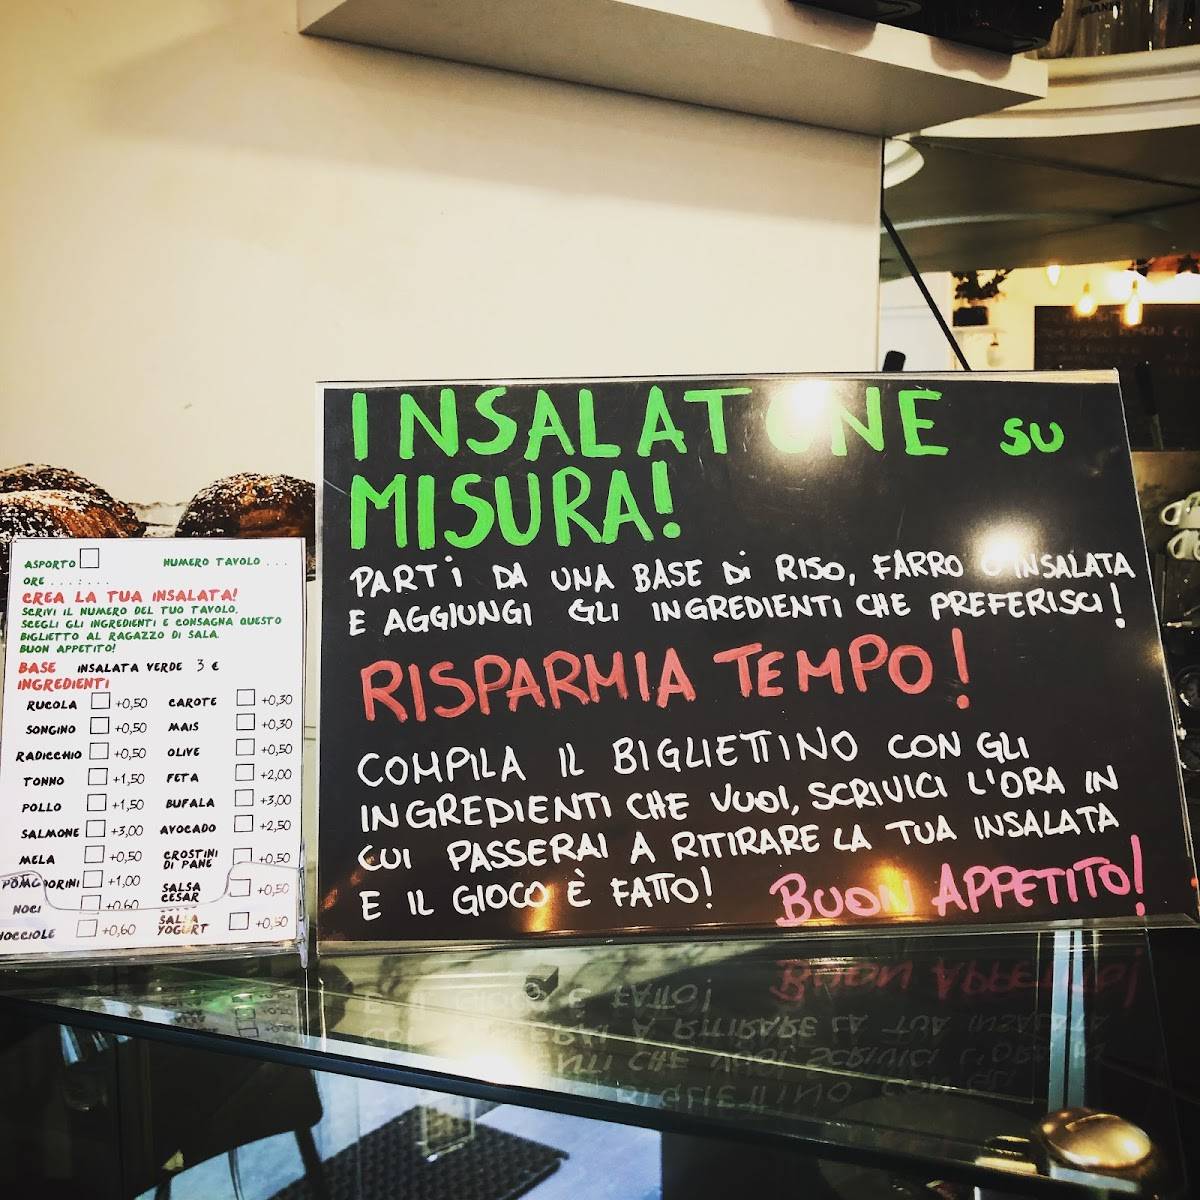 ASPORTO NUMERO TAVOLO ...
ORE ...:...
CREA LA TUA INSALATA!
SCRIVI IL NUMERO DEL TUO TAVOLO,
SCEGLI GLI INGREDIENTI E CONSEGNA QUESTO
BIGLIETTO AL RAGAZZO DI SALA.
BUON APPETITO!
BASE INSALATA VERDE 3 €
INGREDIENTI
RUCOLA +0,50 CAROTE +0,30
SONGINO +0,50 MAIS +0,30
RADICCHIO +0,50 OLIVE +0,50
TONNO +1,50 FETA +2,00
POLLO +1,50 BUFALA +3,00
SALMONE +3,00 AVOCADO +2,50
MELA +0,50 CROSTINI DI PANE +0,50
POMODORINI +1,00 SALSA CESAR +0,50
NOCI +0,60
NOCCIOLE +0,60 SALSA YOGURT +0,50
INSALATONE SU
MISURA!
PARTI DA UNA BASE DI RISO, FARRO O INSALATA
E AGGIUNGI GLI INGREDIENTI CHE PREFERISCI!
RISPARMIA TEMPO!
COMPILA IL BIGLIETTINO CON GLI
INGREDIENTI CHE VUOI, SCRIVICI L'ORA IN
CUI PASSERAI A RITIRARE LA TUA INSALATA
E IL GIOCO È FATTO! BUON APPETITO!